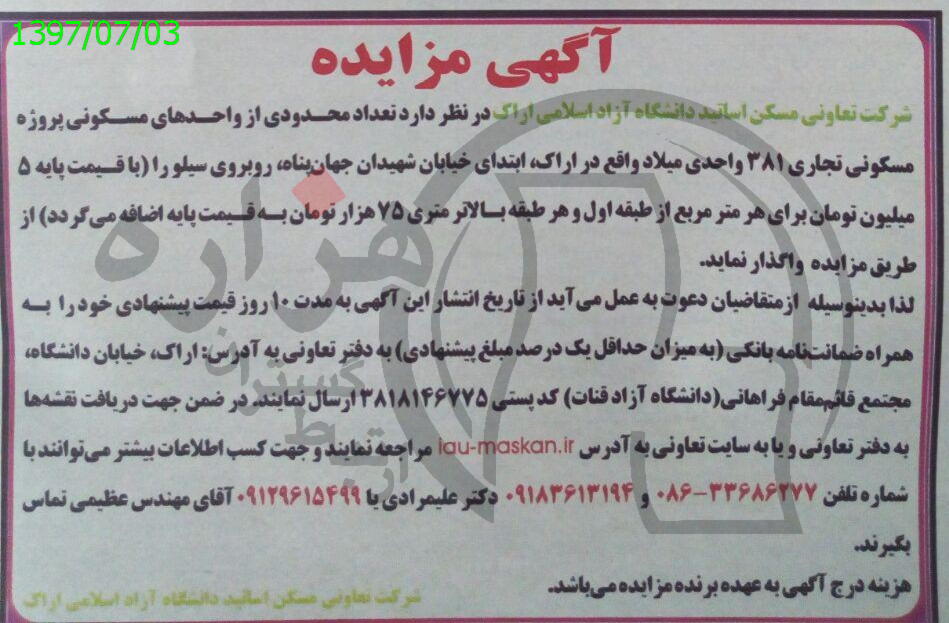 1397/07/03
آگهی مزایده
شرکت تعاونی مسکن اساتید دانشگاه آزاد اسلامی اراک در نظر دارد تعداد محدودی از واحدهای مسکونی پروژه
مسکونی تجاری ۳۸۱ واحدی میلاد واقع در اراک، ابتدای خیابان شهیدان جهان‌پناه، روبروی سیلو را (با قیمت پایه ۵
میلیون تومان برای هر متر مربع از طبقه اول و هر طبقه بالاتر متری ۷۵ هزار تومان به قیمت پایه اضافه می‌گردد) از
طریق مزایده واگذار نماید.
لذا بدینوسیله از متقاضیان دعوت به عمل می‌آید از تاریخ انتشار این آگهی به مدت ۱۰ روز قیمت پیشنهادی خود را به
همراه ضمانت‌نامه بانکی (به میزان حداقل یک درصد مبلغ پیشنهادی) به دفتر تعاونی به آدرس: اراک، خیابان دانشگاه،
مجتمع قائم‌مقام فراهانی (دانشگاه آزاد قنات) کد پستی ۳۸۱۸۱۴۶۷۷۵ ارسال نمایند. در ضمن جهت دریافت نقشه‌ها
به دفتر تعاونی و یا به سایت تعاونی به آدرس iau-maskan.ir مراجعه نمایند و جهت کسب اطلاعات بیشتر می‌توانند با
شماره تلفن ۳۳۶۸۶۲۷۷-۰۸۶ و ۰۹۱۸۳۶۱۳۱۹۴ دکتر علیمرادی یا ۰۹۱۲۹۶۱۵۴۹۹ آقای مهندس عظیمی تماس
بگیرند.
هزینه درج آگهی به عهده برنده مزایده می‌باشد.
شرکت تعاونی مسکن اساتید دانشگاه آزاد اسلامی اراک
هزاره